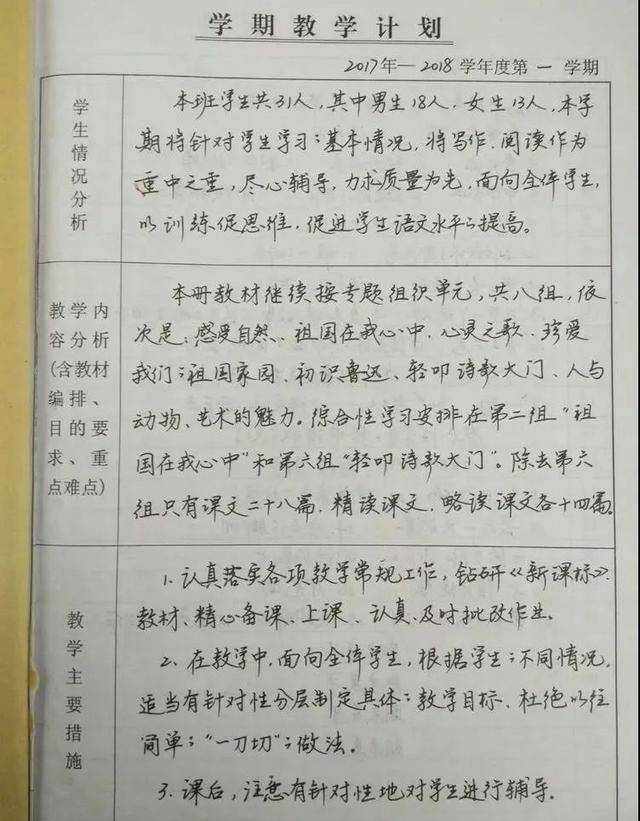 学期教学计划
2017年—2018学年度第一学期
学生情况分析
本班学生共31人,其中男生18人,女生13人,本学
期将针对学生学习的基本情况,将写作、阅读作为
重中之重,尽心辅导,力求质量为先,面向全体学生,
以训练促思维,促进学生语文水平的提高。
教学内
容分析
(含教材
编排、
目的要
求、重
点难点)
本册教材继续按专题组织单元,共八组,依
次是:感受自然、祖国在我心中、心灵之歌、珍爱
我们的祖国家园、初识鲁迅、轻叩诗歌大门、人与
动物、艺术的魅力。综合性学习安排在第二组“祖
国在我心中”和第六组“轻叩诗歌大门”。除去第六
组只有课文二十八篇,精读课文、略读课文各十四篇。
教学主要措施
1.认真落实各项教学常规工作,钻研《新课标》
教材、精心备课、上课、认真、及时批改作业。
2、在教学中,面向全体学生,根据学生的不同情况,
适当有针对性分层制定具体的教学目标、杜绝以往
简单的“一刀切”的做法。
3、课后,注意有针对性地对学生进行辅导。